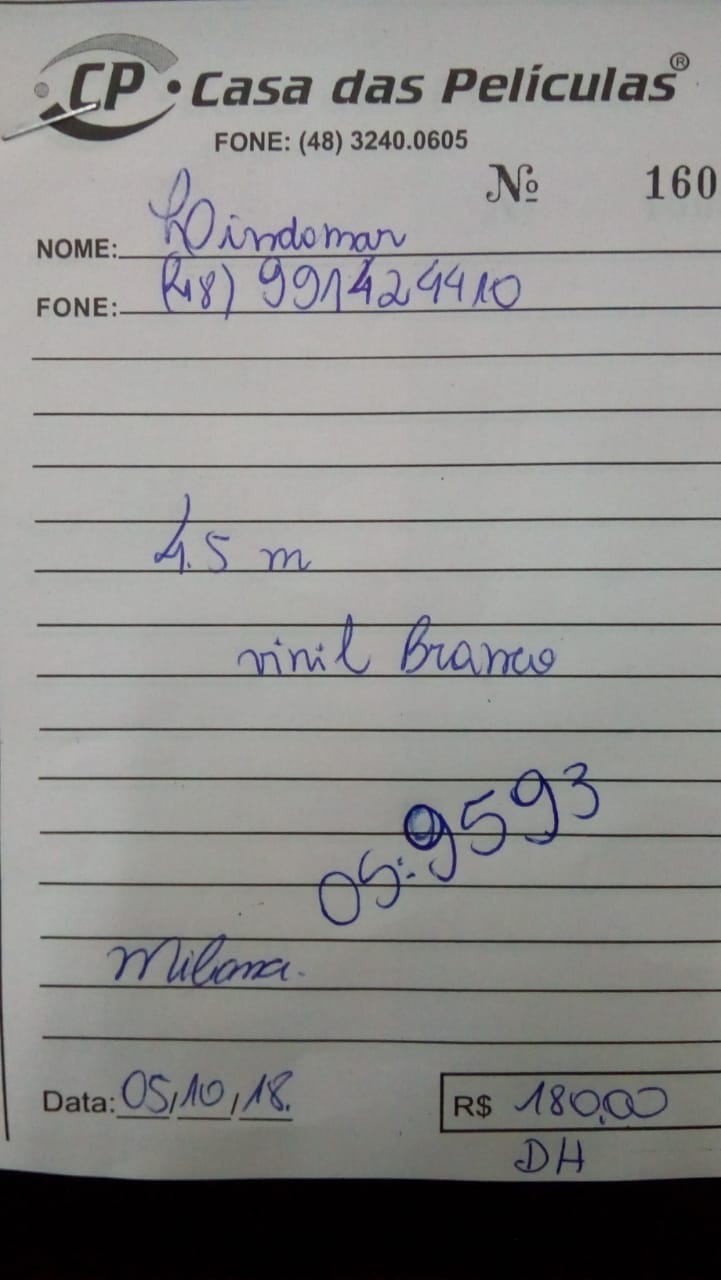 CP • Casa das Películas®
FONE: (48) 3240.0605
Nº 160
NOME: Lindomar
FONE: (48) 991424410
4.5 m
vinil Branco
OS: 9593
Milana.
Data: 05/10/18.
R$ 180,00
DH